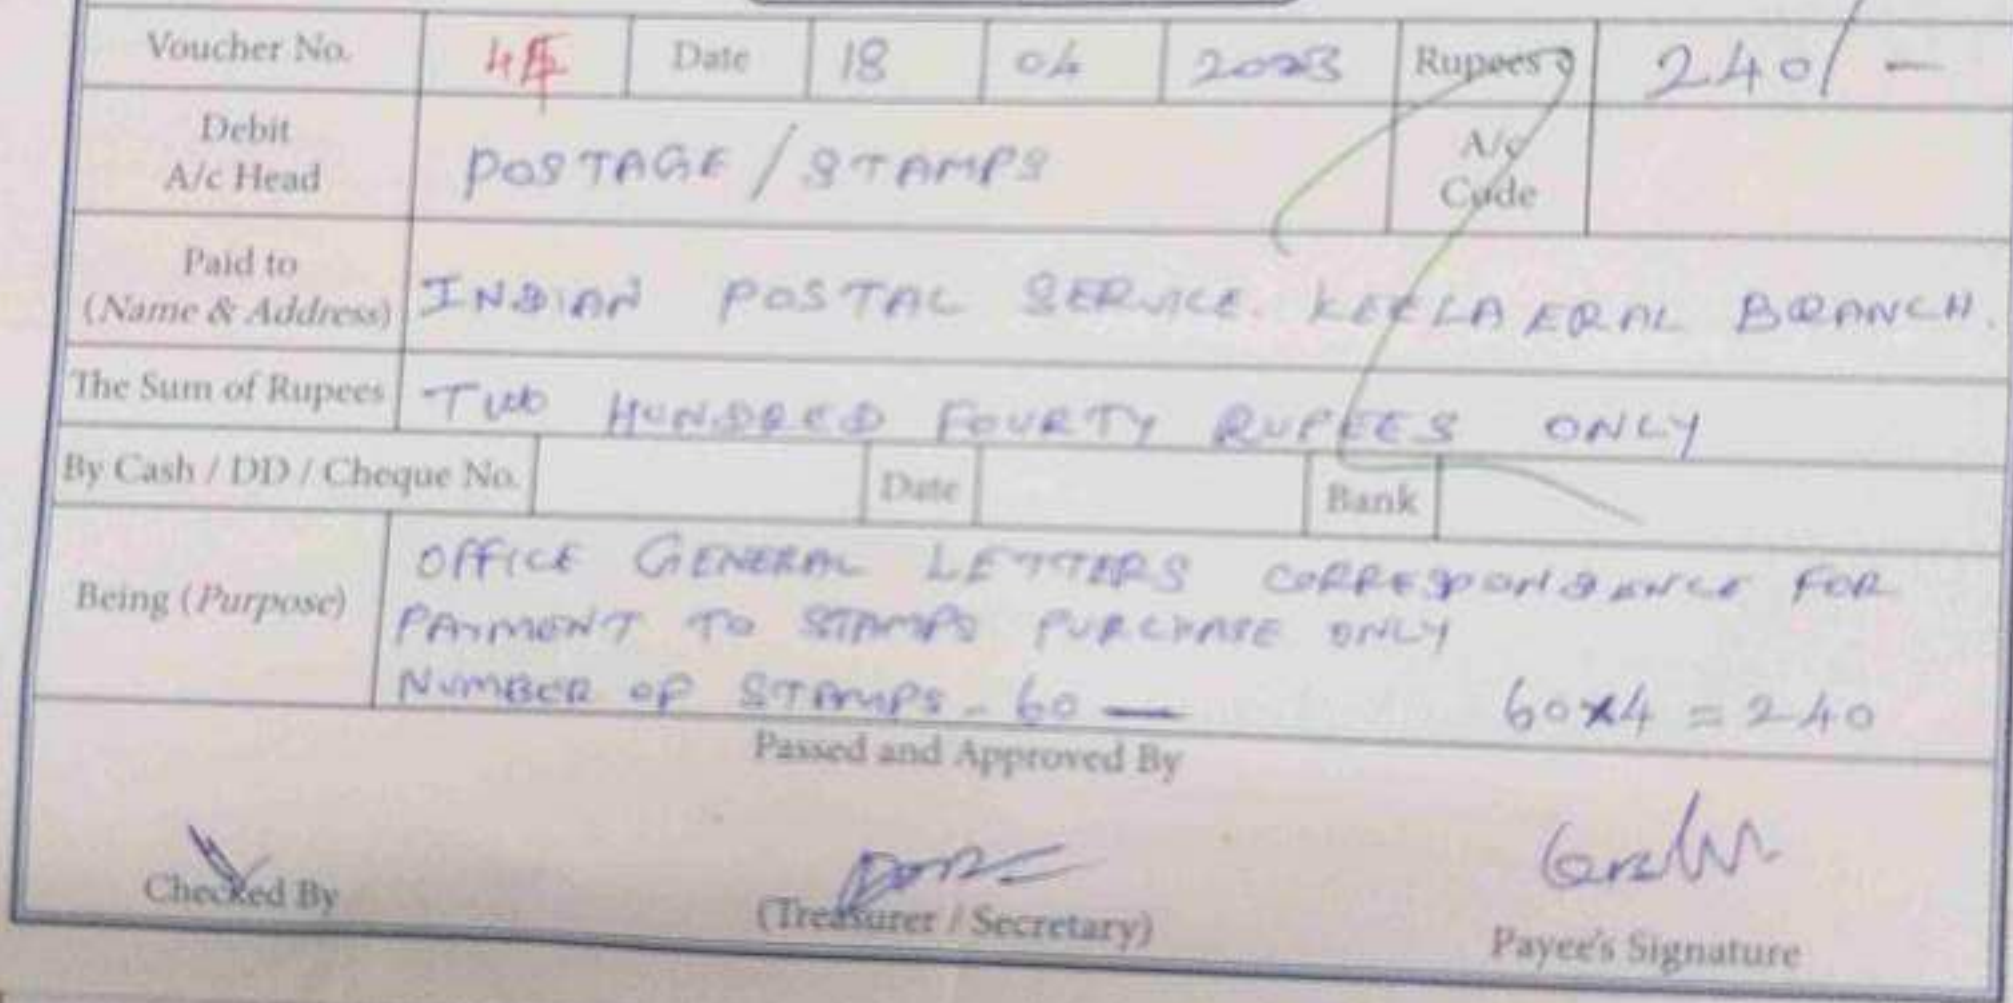 Voucher No. Date 18 04 2023 Rupees 240/-
Debit A/c Head POSTAGE / STAMPS A/c Code
Paid to (Name & Address) INDIAN POSTAL SERVICE. KEELA ERAL BRANCH.
The Sum of Rupees TWO HUNDRED FOURTY RUPEES ONLY
By Cash / DD / Cheque No. Date Bank
Being (Purpose) OFFICE GENERAL LETTERS CORRESPONDENCE FOR
PAYMENT TO STAMPS PURCHASE ONLY
NUMBER OF STAMPS - 60 — 60x4 = 240
Passed and Approved By
Checked By (Treasurer / Secretary) Payee's Signature